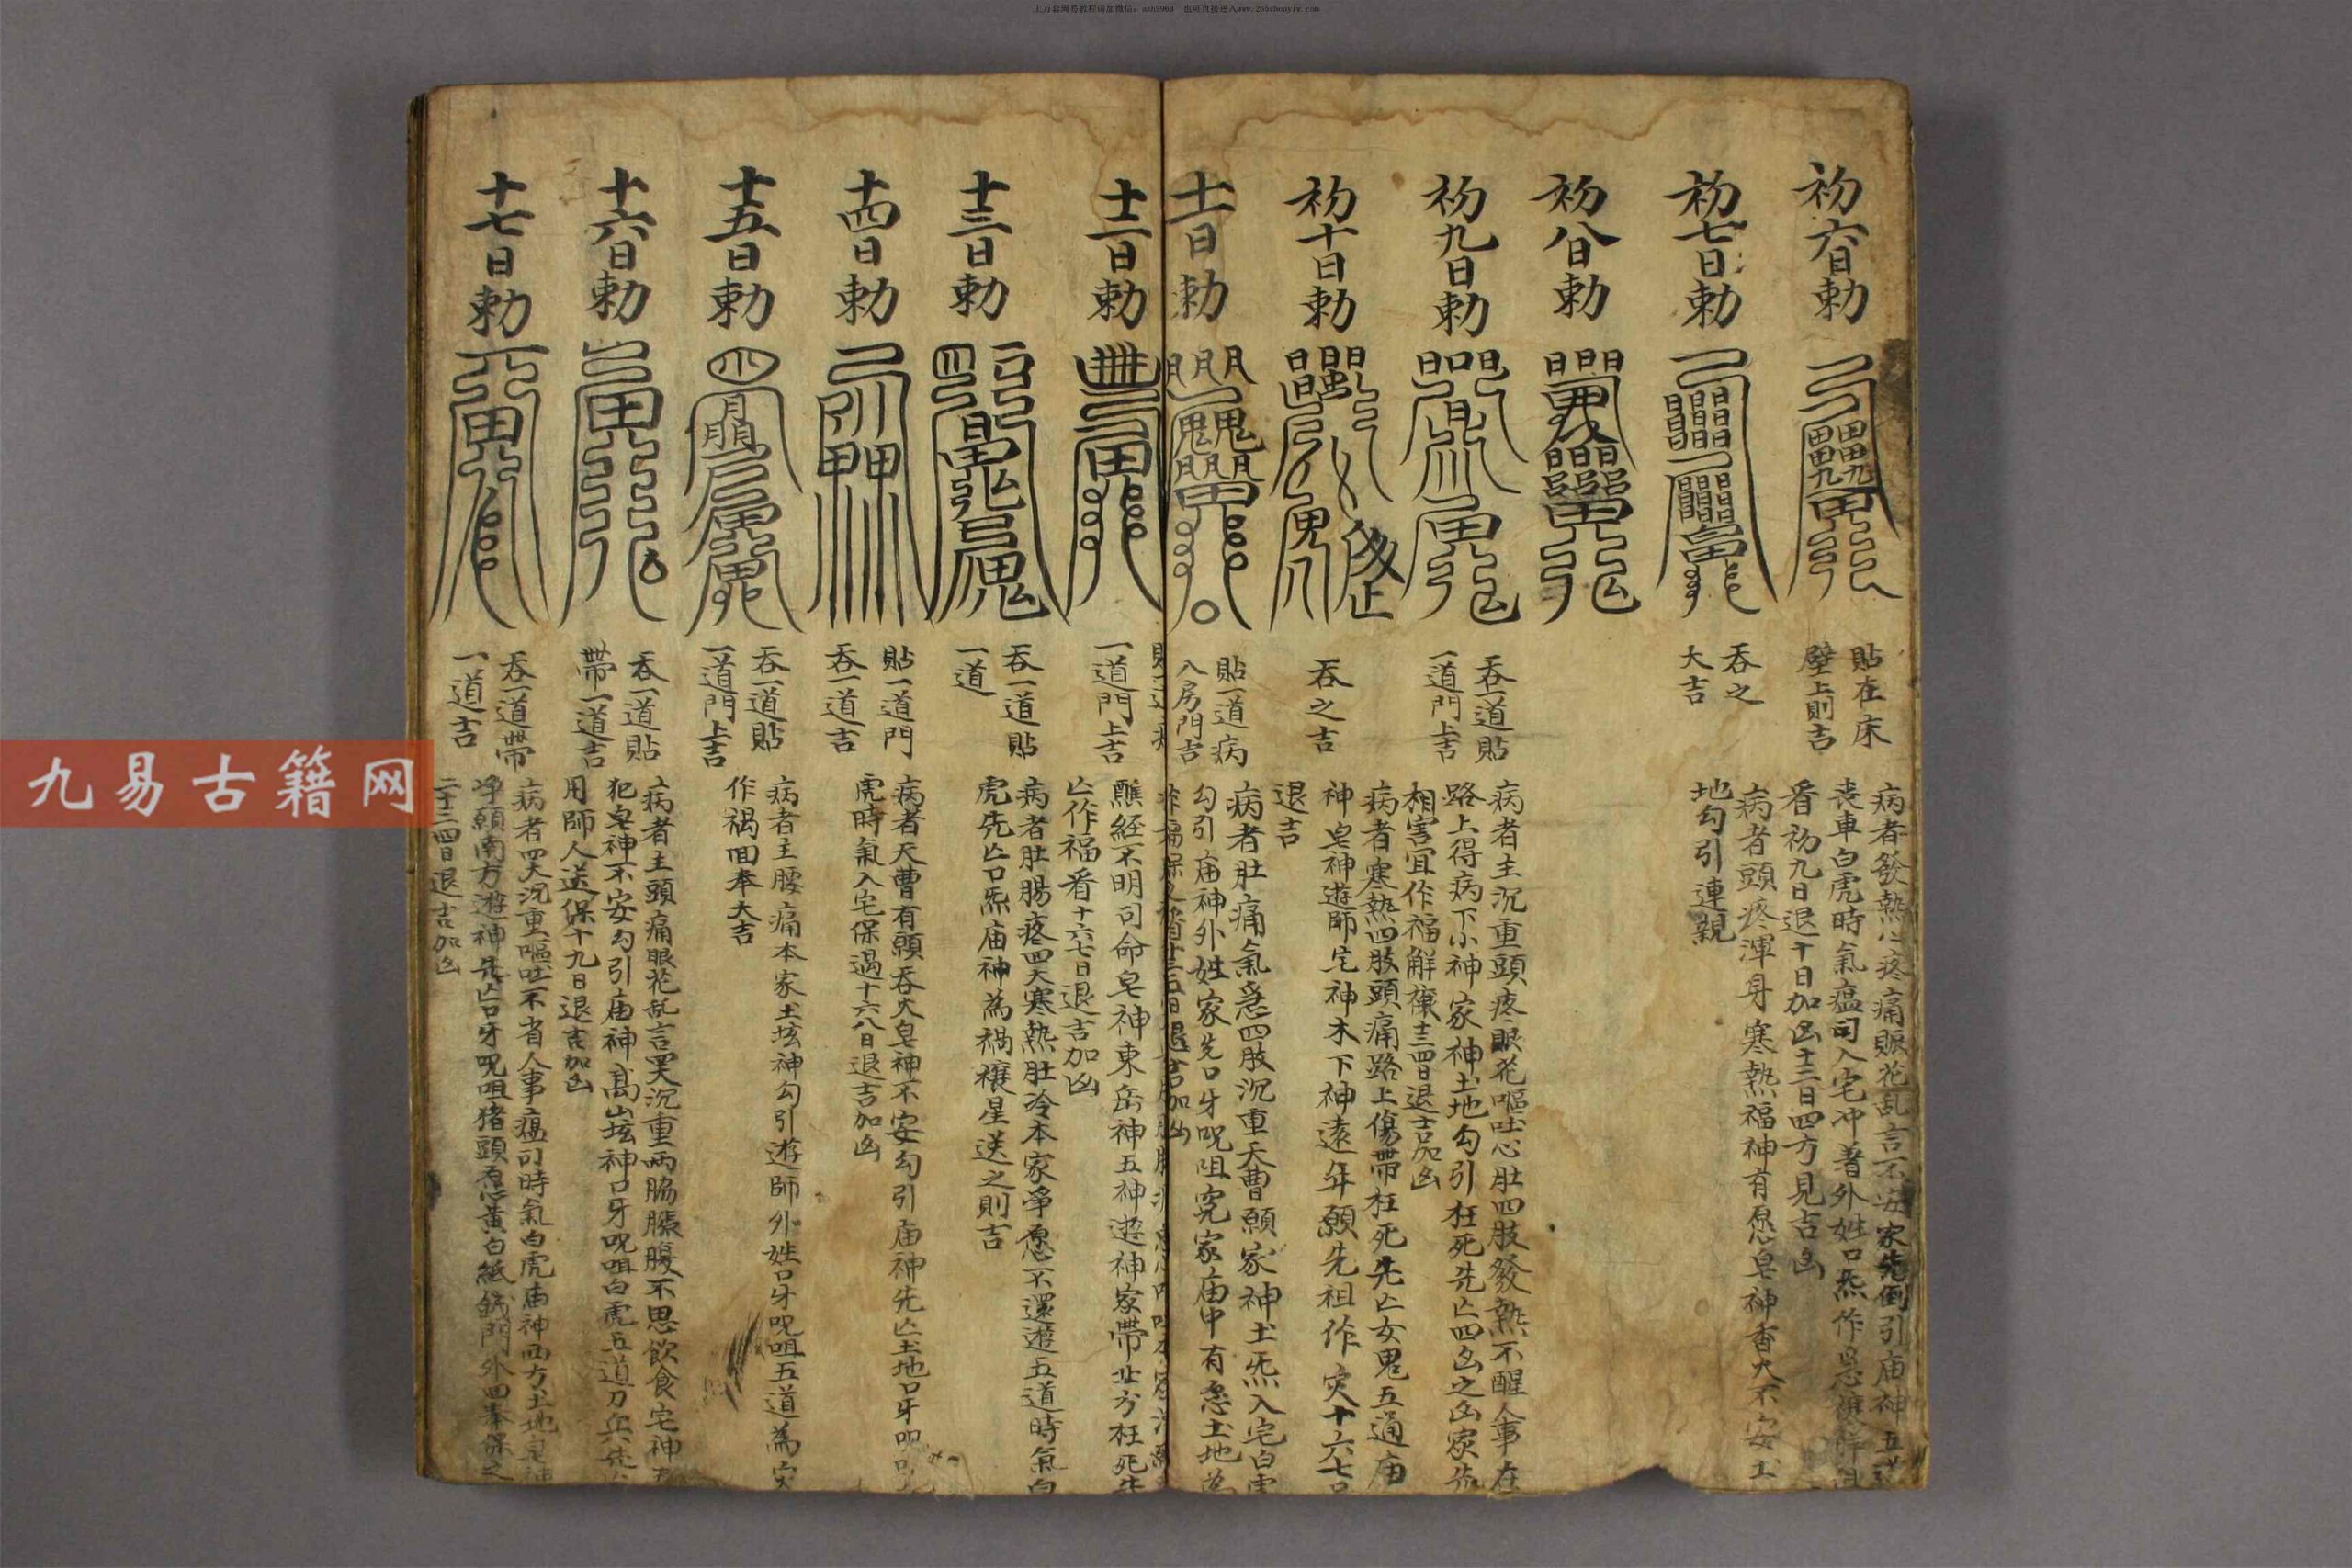 初六日勅
貼在床
壁上則吉
病者發熱心疼痛眼花乱言不安家先倒引庙神五
丧車白虎時氣瘟司入宅冲著外姓口炁作
看初九日退十日加凶十三日四方見吉凶
初七日勅
吞之
大吉
病者頭疼渾身寒熱福神有愿皂神香火不安土
地勾引連親
初八日勅
初九日勅
吞一道貼
一道門上吉
病者主沉重頭疼眼花嘔吐心肚四肢發熱不醒人事在
路上得病下小神家神土地勾引枉死先亡四凶之凶家先
相害宜作福解禳十三四日退吉加凶
初十日勅
吞之吉
病者寒熱四肢頭痛路上傷帶枉死先亡女鬼五通庙
神皂神遊師宅神木下神遠年願先祖作灾十六七日
退吉
十一日勅
貼一道病
人房門吉
病者肚痛氣急四肢沉重天曹願家神土炁入宅白虎
勾引庙神外姓家先口牙呪咀究家庙中有愿土地為
十二日勅
一道門上吉
醮経不明司命皂神東岳神五神遊神家帶北方枉死先
亡作福看十六七日退吉加凶
十三日勅
吞一道貼
一道
病者肚腸疼四大寒熱肚冷本家爭愿不還遊五道時氣白
虎先亡口炁庙神為禍禳星送之則吉
十四日勅
貼一道門
吞一道吉
病者天曹有願吞火皂神不安勾引庙神先亡土地口牙呪
虎時氣入宅保過十六八日退吉加凶
十五日勅
吞一道貼
一道門上吉
病者主腰痛本家土坛神勾引遊師外姓口牙呪咀五道為灾
作禍回奉大吉
十六日勅
吞一道貼
帶一道吉
病者主頭痛眼花乱言四大沉重兩脇脹腹不思飲食宅神
犯皂神不安勾引庙神高山坛神口牙呪咀白虎五道刀兵
用師人送保十九日退吉加凶
十七日勅
吞一道帶
一道吉
病者四大沉重嘔吐不省人事瘟司時氣白虎庙神西方土地皂神
净願南方遊神先亡口牙呪咀猪頭愿黃白紙錢門外四奉保之
二十三四日退吉加凶
九易古籍网